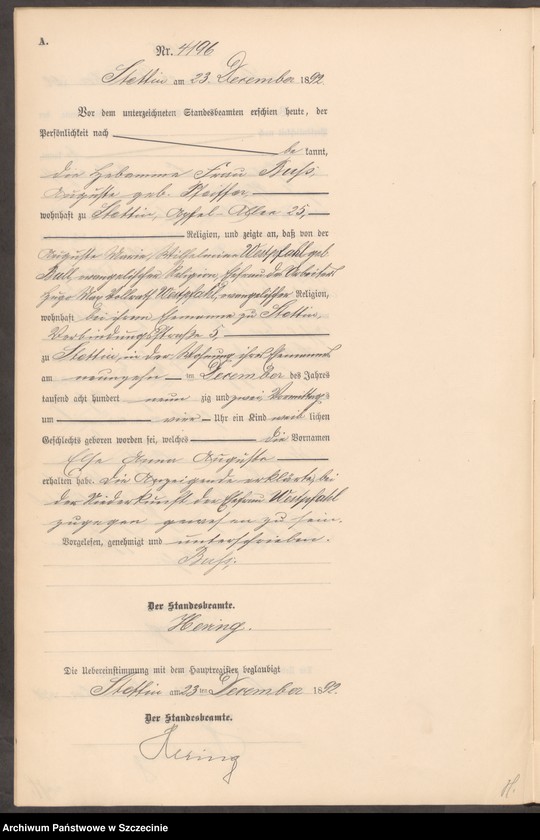 A.
Nr. 4196
Stettin am 23. December 1892
Vor dem unterzeichneten Standesbeamten erschien heute, der
Persönlichkeit nach
be kannt,
die Hebamme Frau Buss
Auguste geb. Pfeiffer,
wohnhaft zu Stettin, Apfel-Allee 25,
Religion, und zeigte an, daß von der
Auguste Marie Wilhelmine Westpfahl geb.
evangelischer Religion, Ehefrau des Arbeiters
Hugo Max Westpfahl, evangelischer Religion,
wohnhaft bei ihrem Ehemanne zu Stettin,
Verbindungsstraße 5,
zu Stettin, in der Wohnung ihres Ehemannes
am neunzehn ten December des Jahres
tausend acht hundert neun zig und zwei Vormittags
um vier Uhr ein Kind weib lichen
Geschlechts geboren worden sei, welches die Vornamen
Else Anna Auguste
erhalten habe. Die Anzeigende erklärte, bei
der Niederkunft der Ehefrau Westpfahl
zugegen gewesen zu sein.
Vorgelesen, genehmigt und unterschrieben.
Buss.
Der Standesbeamte.
Hering.
Die Uebereinstimmung mit dem Hauptregister beglaubigt
Stettin am 23 ten December 1892.
Der Standesbeamte.
Hering
Archiwum Państwowe w Szczecinie